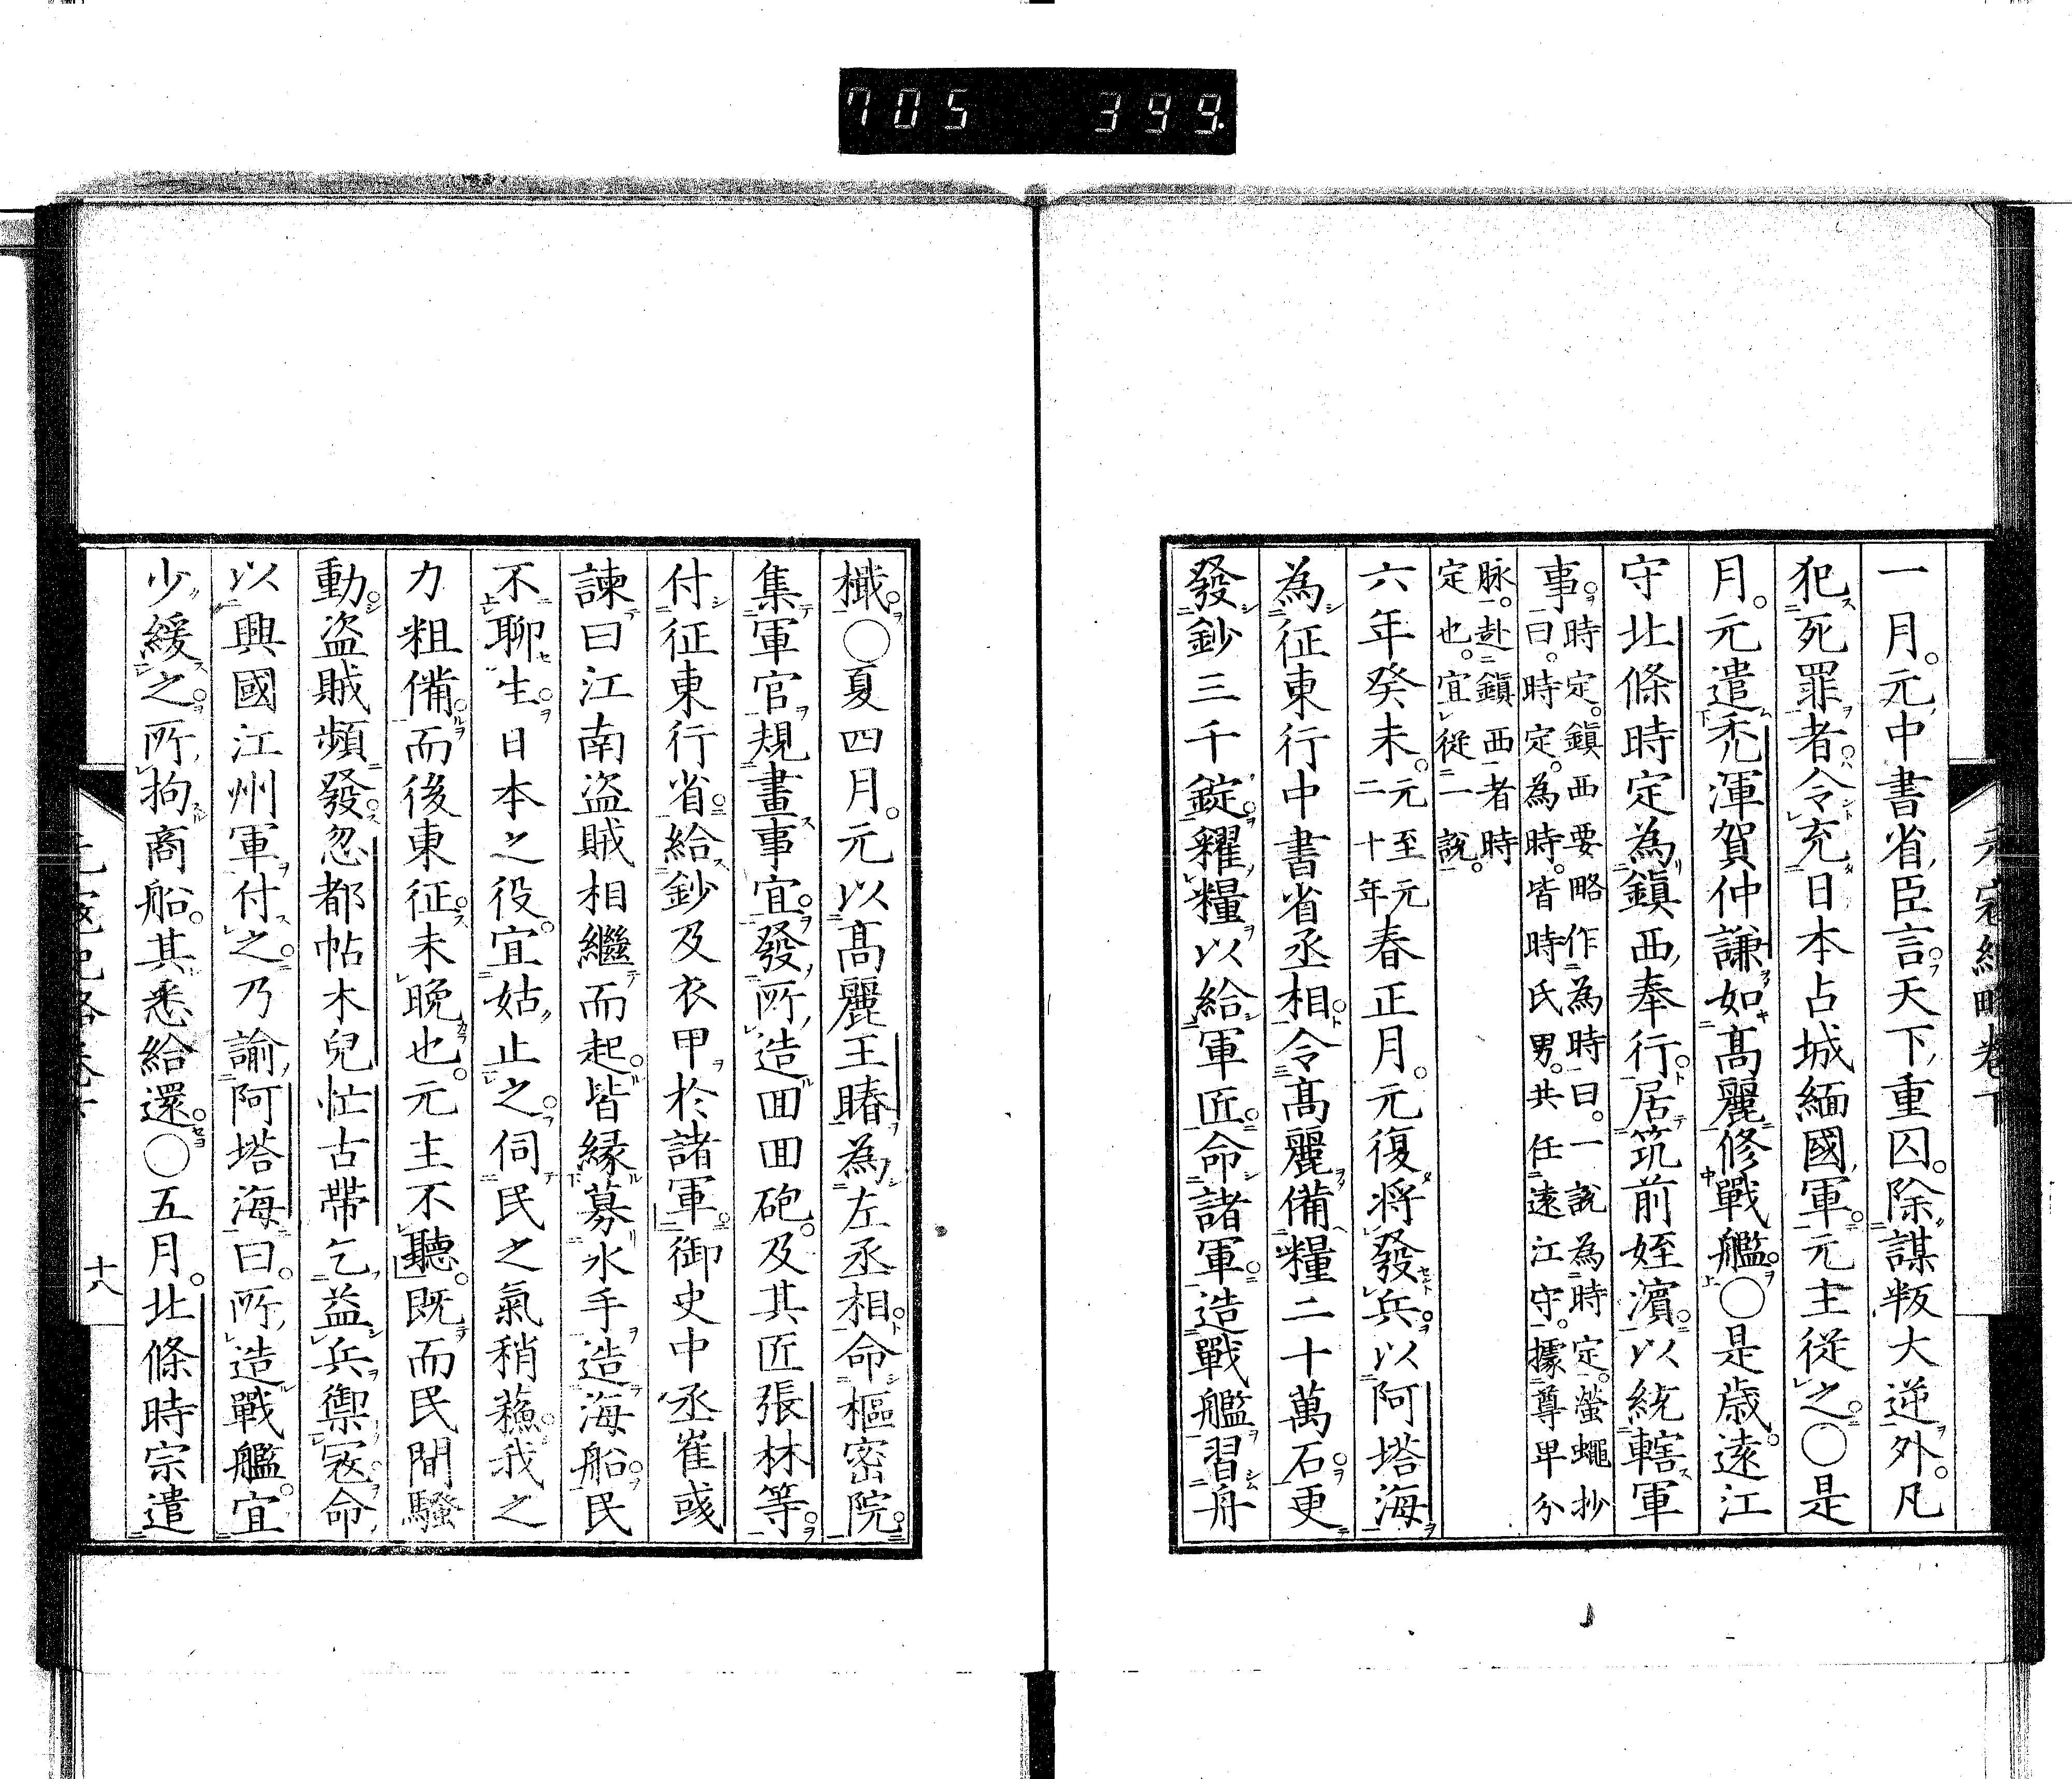 705 399.
元寇紀略卷下
一月。元中書省臣言。天下重囚。除謀叛大逆外。凡
犯死罪者。令充日本占城緬國軍。元主從之。○是
月。元遣禿渾賀仲謙如高麗修戰艦。○是歲。遠江
守北條時定為鎭西奉行。居筑前姪濵。以統轄軍
事。時定。鎭西要略作為時。曰。一說為時定。螢蠅抄
曰。時定。為時。皆時氏男。共任遠江守。據尊卑分
脉。赴鎭西者時
定也。宜從一說。
六年癸未。元至元
二十年
春正月。元復將發兵。以阿塔海
為征東行中書省丞相。令高麗備糧二十萬石。更
發鈔三千錠。糴糧以給軍匠。命諸軍造戰艦習舟
檝。○夏四月。元以高麗王賰為左丞相。命樞密院
集軍官規畫事宜。發所造囬囬砲。及其匠張林等。
付征東行省。給鈔及衣甲於諸軍。御史中丞崔彧
諫曰。江南盜賊相繼而起。皆緣募水手造海船。民
不聊生。日本之役。宜姑止之。伺民之氣稍蘓。我之
力粗備。而後東征未晩也。元主不聽。既而民間騷
動。盜賊頻發。忽都帖木兒忙古帶乞益兵禦寇。命
以興國江州軍付之。乃諭阿塔海曰。所造戰艦。宜
少緩之。所拘商船。其悉給還。○五月。北條時宗遣
十八